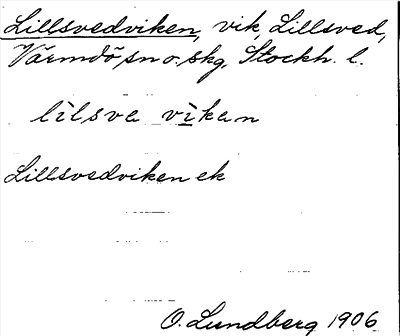 Lillsvedviken, vik, Lillsved,
Värmdö sn o. skg, Stockh. l.
lilsve vikan
Lillsvedviken ek
O. Lundberg 1906